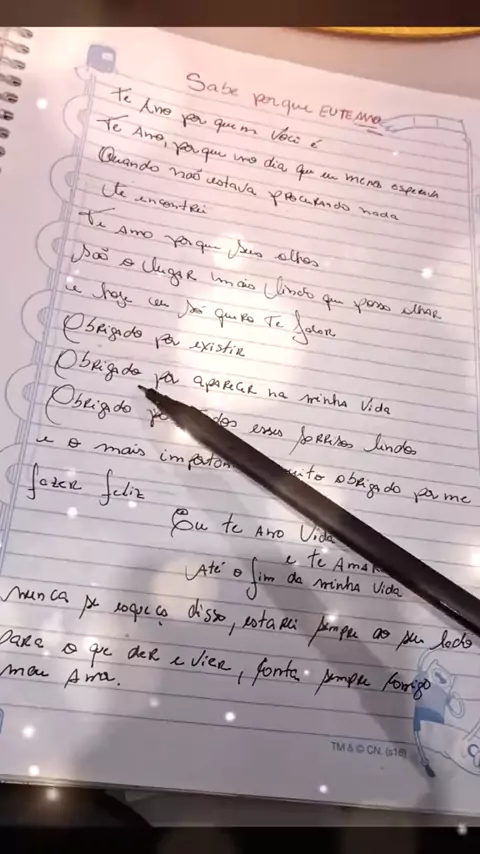 Sabe porque EU TE AMO
Te Amo por quem Você é
Te Amo, porque no dia que eu menos esperava
Quando não estava procurando nada
te encontrei
Te Amo porque seus olhos
são o lugar mais lindo que posso olhar
e hoje eu só quero te falar
Obrigado por existir
Obrigado por aparecer na minha vida
Obrigado esses sorrisos lindos
e o mais obrigado por me
fazer feliz
Eu te Amo Vida
e te Amar
Até o fim da minha vida
nunca se esqueça disso, estarei sempre ao seu lado
para o que der e vier, conta sempre comigo
meu Amor.
TM & © CN. (s16)